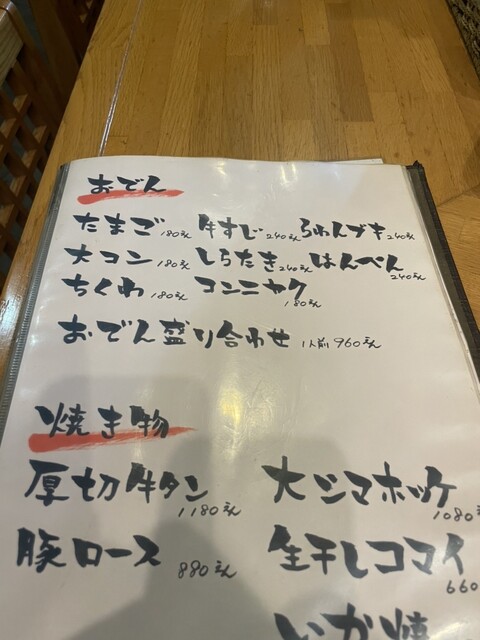 おでん
たまご 180えん 牛すじ 240えん らわんブキ 240えん
大コン 180えん しらたき 240えん はんぺん 240えん
ちくわ 180えん コンニャク 180えん
おでん盛り合わせ 1人前 960えん
焼き物
厚切牛タン 1180えん 大シマホッケ 1080え
豚ロース 880えん 生干しコマイ 660
いか焼